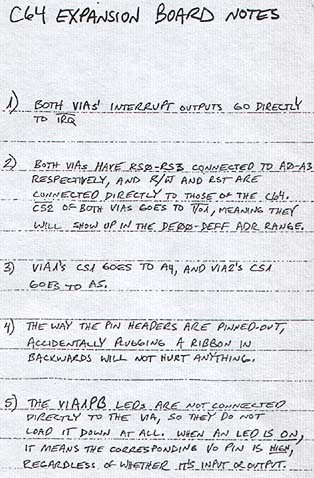 C64 EXPANSION BOARD NOTES
1) BOTH VIAs' INTERRUPT OUTPUTS GO DIRECTLY
TO I̅R̅Q̅
2) BOTH VIAs HAVE RS0-RS3 CONNECTED TO A0-A3
RESPECTIVELY, AND R/W̅ AND RST ARE
CONNECTED DIRECTLY TO THOSE OF THE C64.
CS2 OF BOTH VIAs GOES TO I̅/̅O̅1̅, MEANING THEY
WILL SHOW UP IN THE DE00-DEFF ADR RANGE.
3) VIA1's CS1 GOES TO A4, AND VIA2's CS1
GOES TO A5.
4) THE WAY THE PIN HEADERS ARE PINNED-OUT,
ACCIDENTALLY PLUGGING A RIBBON IN
BACKWARDS WILL NOT HURT ANYTHING.
5) THE VIA1PB LEDs ARE NOT CONNECTED
DIRECTLY TO THE VIA, SO THEY DO NOT
LOAD IT DOWN AT ALL. WHEN AN LED IS ON,
IT MEANS THE CORRESPONDING I/O PIN IS HIGH,
REGARDLESS OF WHETHER IT'S INPUT OR OUTPUT.